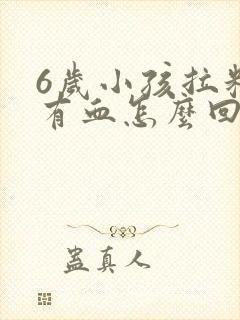 6歲小孩拉
有血怎麼回
蠱真人